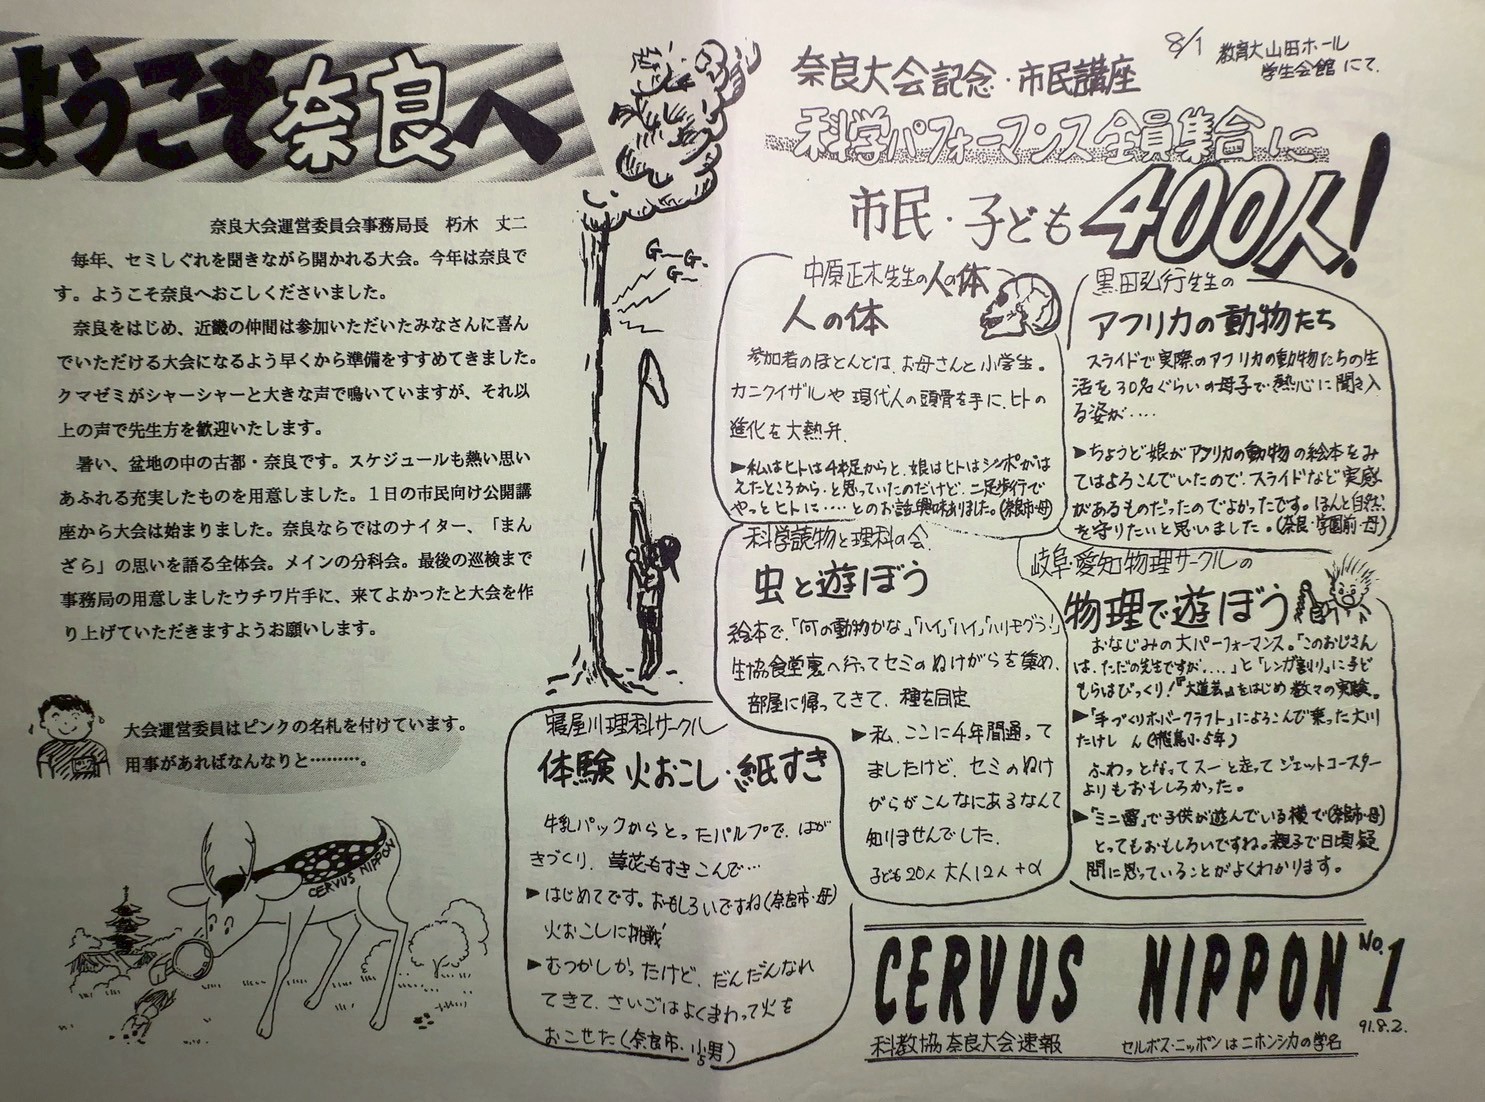 ようこそ奈良へ
奈良大会運営委員会事務局長 朽木 丈二
毎年、セミしぐれを聞きながら開かれる大会。今年は奈良で
す。ようこそ奈良へおこしくださいました。
奈良をはじめ、近畿の仲間は参加いただいたみなさんに喜ん
でいただける大会になるよう早くから準備をすすめてきました。
クマゼミがシャーシャーと大きな声で鳴いていますが、それ以
上の声で先生方を歓迎いたします。
暑い、盆地の中の古都・奈良です。スケジュールも熱い思い
あふれる充実したものを用意しました。1日の市民向け公開講
座から大会は始まりました。奈良ならではのナイター、「まん
ざら」の思いを語る全体会。メインの分科会。最後の巡検まで
事務局の用意しましたウチワ片手に、来てよかったと大会を作
り上げていただきますようお願いします。
大会運営委員はピンクの名札を付けています。
用事があればなんなりと………。
CERVUS NIPPON
G-G-
G-
8/1 教育大山田ホール
学生会館にて.
奈良大会記念・市民講座
科学パフォーマンス全員集合に
市民・子ども400人!
中原正木先生の人の体
人の体
参加者のほとんどは、お母さんと小学生。
カニクイザルや現代人の頭骨を手に、ヒトの
進化を大熱弁.
▶私はヒトは4本足からと、娘はヒトはシッポがは
えたところから・と思っていたのだけど、二足歩行で
やっとヒトに‥‥とのお話興味ありました。(奈良市・母)
黒田弘行先生の
アフリカの動物たち
スライドで実際のアフリカの動物たちの生
活を30名ぐらいの母子で熱心に聞き入
る姿が‥‥
▶ちょうど娘がアフリカの動物の絵本をみ
てはよろこんでいたので、スライドなど実感
があるものだったのでよかったです。ほんと自然
を守りたいと思いました。(奈良・学園前・母)
科学読物と理科の会
虫と遊ぼう
絵本で、「何の動物かな」「ハイ」「ハイ」「ハリモグラ!」
生協食堂裏へ行ってセミのぬけがらを集め、
部屋に帰ってきて、種を同定
▶私、ここに4年間通って
ましたけど、セミのぬけ
がらがこんなにあるなんて
知りませんでした.
子ども20人 大人12人+α
岐阜・愛知物理サークルの
物理で遊ぼう
おなじみの大パーフォーマンス。「このおじさん
は、ただの先生ですが‥‥」と「レンガ割り」に子ど
もらはびっくり!『大道芸』をはじめ数々の実験。
▶「手づくりホバークラフト」によろこんで乗った大川
たけし ん(飛鳥小・5年)
ふわっとなってスーと走ってジェットコースター
よりもおもしろかった。
▶「ミニ雷」で子供が遊んでいる横で(奈良市・母)
とってもおもしろいですね。親子で日頃疑
問に思っていることがよくわかります。
寝屋川理科サークル
体験 火おこし・紙すき
牛乳パックからとったパルプで、はが
きづくり. 草花もすきこんで…
▶はじめてです。おもしろいですね(奈良市・母)
火おこしに挑戦
▶むつかしかったけど、だんだんなれ
てきて、さいごはよくまわって火を
おこせた(奈良市・小5男)
CERVUS NIPPON No.1
91.8.2.
科教協奈良大会速報 セルボス・ニッポンはニホンシカの学名